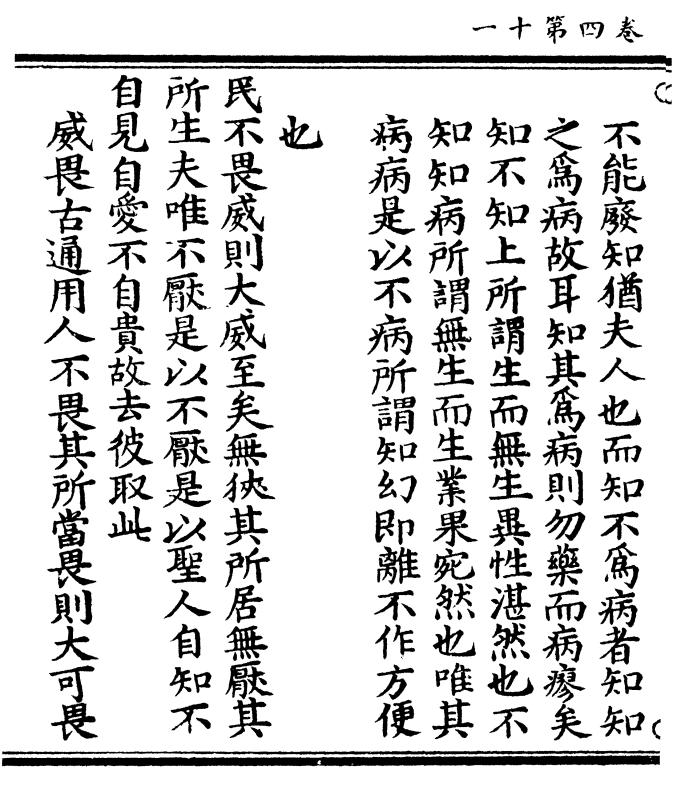 卷四第十一
不能廢知猶夫人也而知不爲病者知知
之爲病故耳知其爲病則勿藥而病瘳矣
知不知上所謂生而無生異性湛然也不
知知病所謂無生而生業果宛然也唯其
病病是以不病所謂知幻即離不作方便
也
民不畏威則大威至矣無狹其所居無厭其
所生夫唯不厭是以不厭是以聖人自知不
自見自愛不自貴故去彼取此
威畏古通用人不畏其所當畏則大可畏